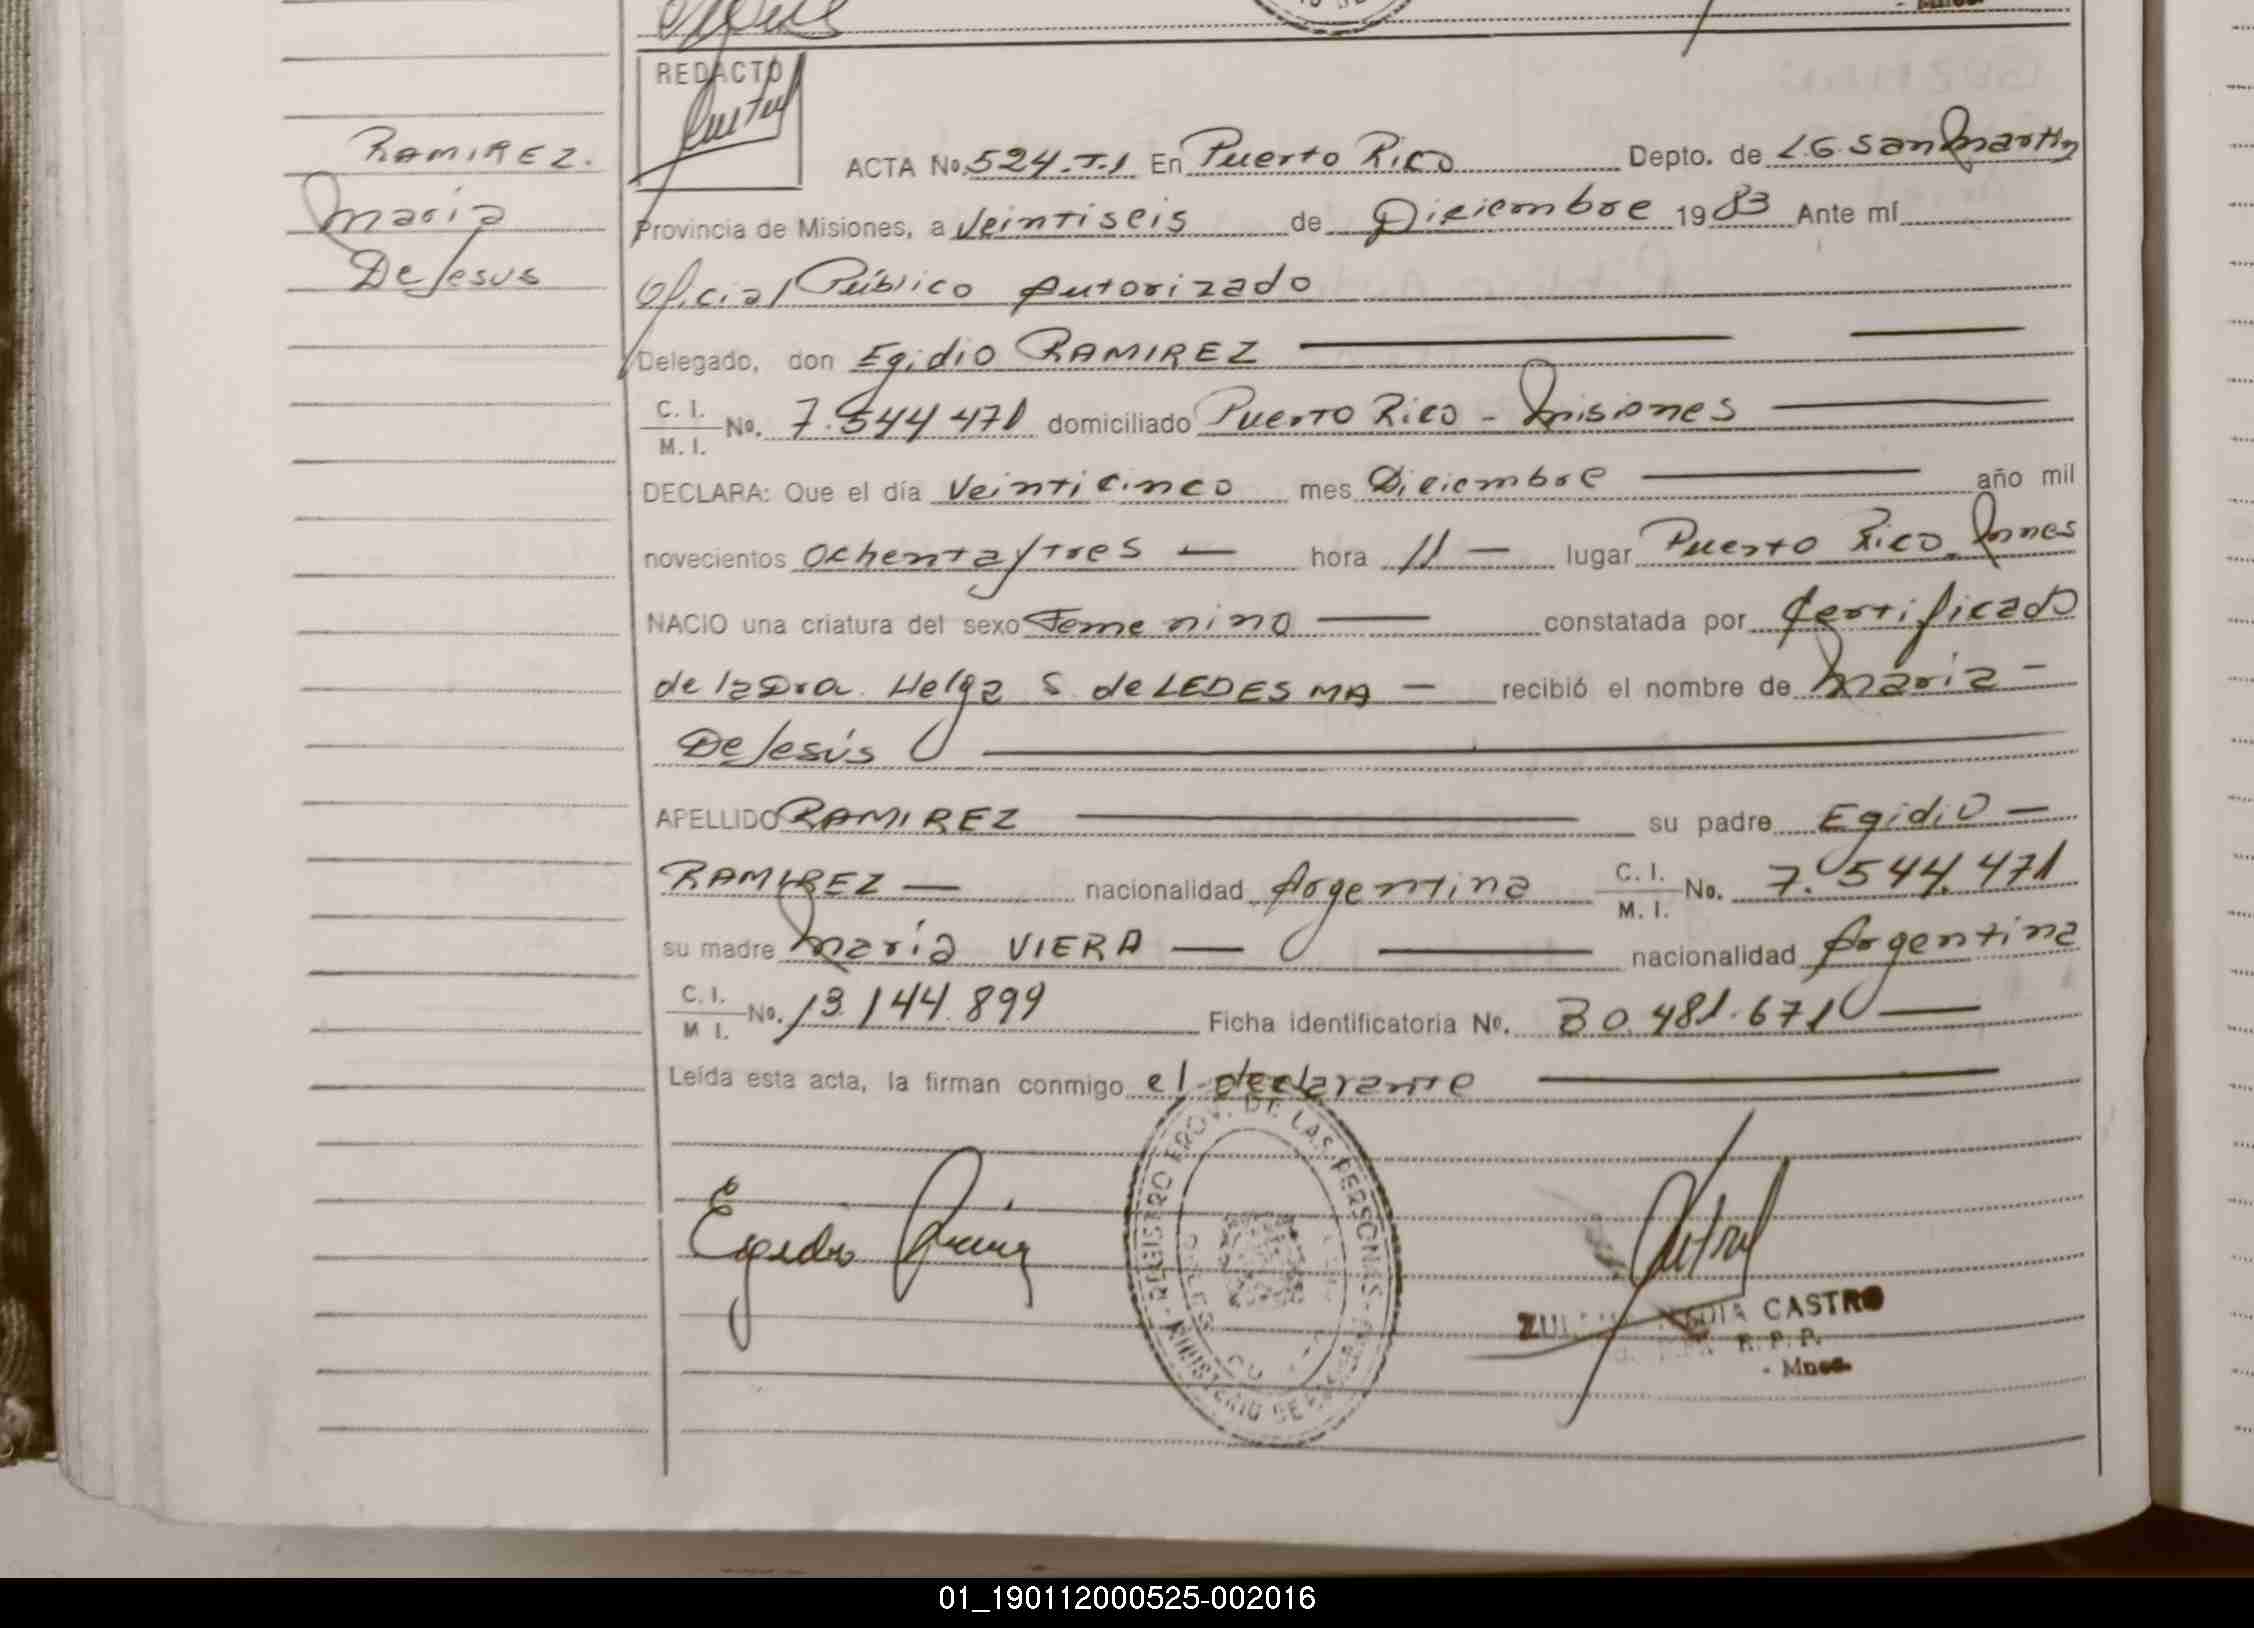 RAMIREZ.
Maria
De Jesus
REDACTO
ACTA No. 524-T.I En Puerto Rico Depto. de L.G. San Martin
Provincia de Misiones, a Veintiseis de Diciembre 1983 Ante mí
Oficial Público Autorizado
Delegado, don Egidio RAMIREZ
C. I.
M. I.
No. 7.544 471 domiciliado Puerto Rico - Misiones
DECLARA: Que el día Veinticinco mes Diciembre año mil
novecientos Ochenta y tres hora 11 lugar Puerto Rico Mnes
NACIO una criatura del sexo Femenino constatada por Certificado
de la Dra. Helga S. de LEDESMA recibió el nombre de Maria
De Jesús
APELLIDO RAMIREZ su padre Egidio
RAMIREZ nacionalidad Argentina C. I. M. I. No. 7.544.471
su madre María VIERA nacionalidad Argentina
C. I. M I. No. 13.144.899 Ficha identificatoria No. 30.481.671
Leída esta acta, la firman conmigo el declarante
REGISTRO PROV. DE LAS PERSONAS
MINISTERIO DE
Egidio
CASTRO
R. P. P.
- Mnes.
01_190112000525-002016